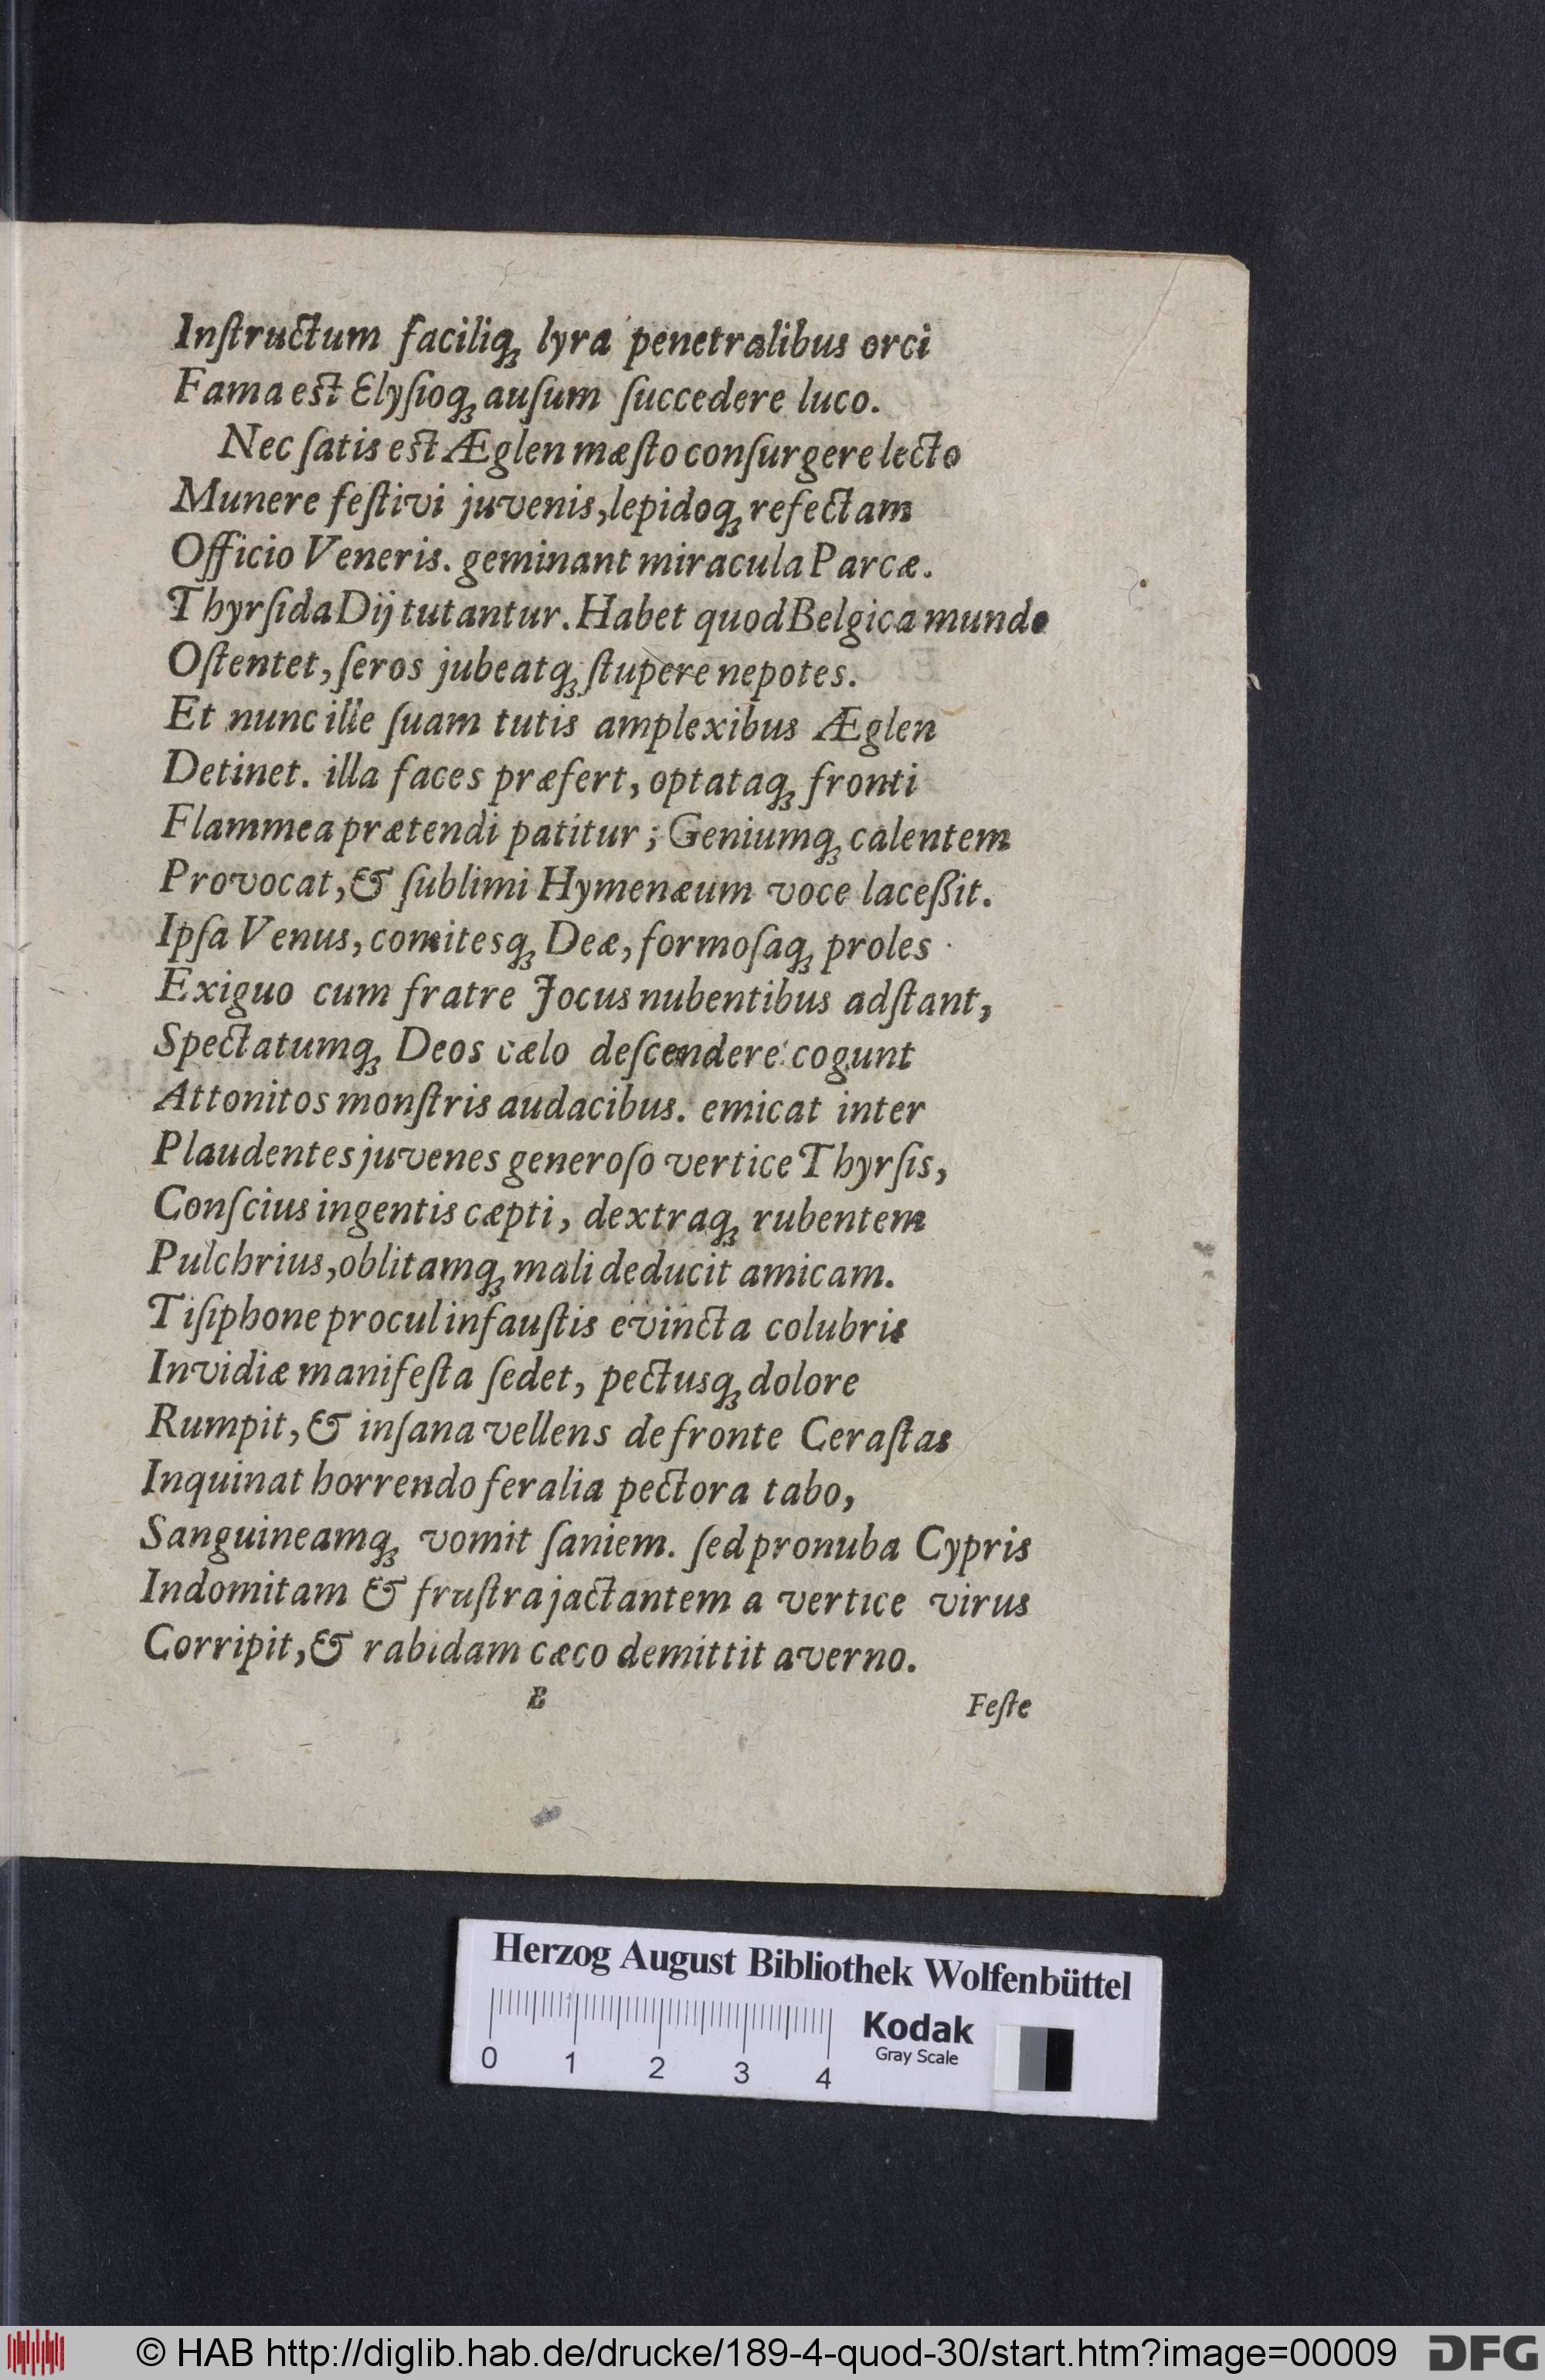 Inſtructum faciliq́ꝫ lyra penetralibus orci
Fama est Elyſioq́ꝫ auſum ſuccedere luco.
Nec ſatis est Æglen mæſto conſurgere lecto
Munere feſtivi juvenis, lepidoq́ꝫ refectam
Officio Veneris. geminant miracula Parcæ.
Thyrſida Dij tutantur. Habet quod Belgica mundo
Oſtentet, ſeros jubeatq́ꝫ ſtupere nepotes.
Et nunc ille ſuam tutis amplexibus Æglen
Detinet. illa faces præfert, optataq́ꝫ fronti
Flammea prætendi patitur; Geniumq́ꝫ calentem
Provocat, & ſublimi Hymenæum voce laceßit.
Ipſa Venus, comitesq́ꝫ Deæ, formoſaq́ꝫ proles
Exiguo cum fratre Jocus nubentibus adſtant,
Spectatumq́ꝫ Deos cælo deſcendere cogunt
Attonitos monſtris audacibus. emicat inter
Plaudentes juvenes generoſo vertice Thyrſis,
Conſcius ingentis cæpti, dextraq́ꝫ rubentem
Pulchrius, oblitamq́ꝫ mali deducit amicam.
Tiſiphone procul infauſtis evincta colubris
Invidiæ manifeſta ſedet, pectusq́ꝫ dolore
Rumpit, & inſana vellens de fronte Ceraſtas
Inquinat horrendo feralia pectora tabo,
Sanguineamq́ꝫ vomit ſaniem. ſed pronuba Cypris
Indomitam & fruſtra jactantem a vertice virus
Corripit, & rabidam cæco demittit averno.
B Feſte
Herzog August Bibliothek Wolfenbüttel
0 1 2 3 4
Kodak
Gray Scale
© HAB http://diglib.hab.de/drucke/189-4-quod-30/start.htm?image=00009
DFG